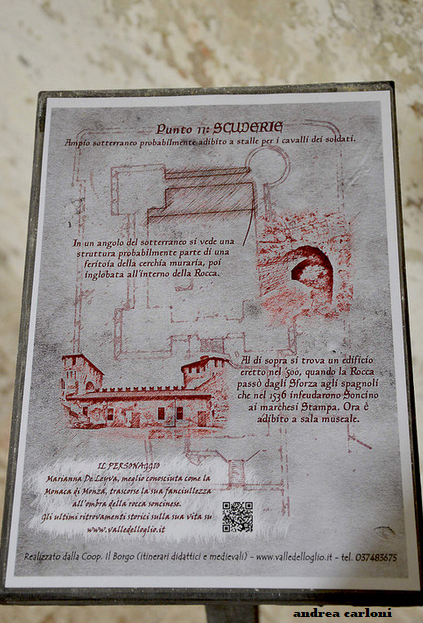 Punto 11: SCUDERIE
Ampio sotterraneo probabilmente adibito a stalle per i cavalli dei soldati.
In un angolo del sotterraneo si vede una
struttura probabilmente parte di una
feritoia della cerchia muraria, poi
inglobata all'interno della Rocca.
Al di sopra si trova un edificio
eretto nel 500, quando la Rocca
passò dagli Sforza agli spagnoli
che nel 1536 infeudarono Soncino
ai marchesi Stampa. Ora è
adibito a sala museale.
IL PERSONAGGIO
Marianna De Leyva, meglio conosciuta come la
Monaca di Monza, trascorse la sua fanciullezza
all'ombra della rocca soncinese.
Gli ultimi ritrovamenti storici sulla sua vita su
www.valledelloglio.it
Realizzato dalla Coop. Il Borgo (itinerari didattici e medievali) - www.valledelloglio.it - tel. 037483675
andrea carloni